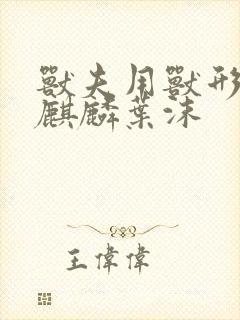 獸夫用獸形
麒麟葉沫
王偉偉